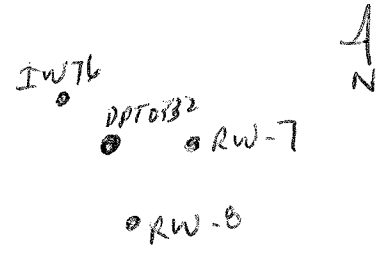 IW76
DPT0332
RW-7
RW-8
N